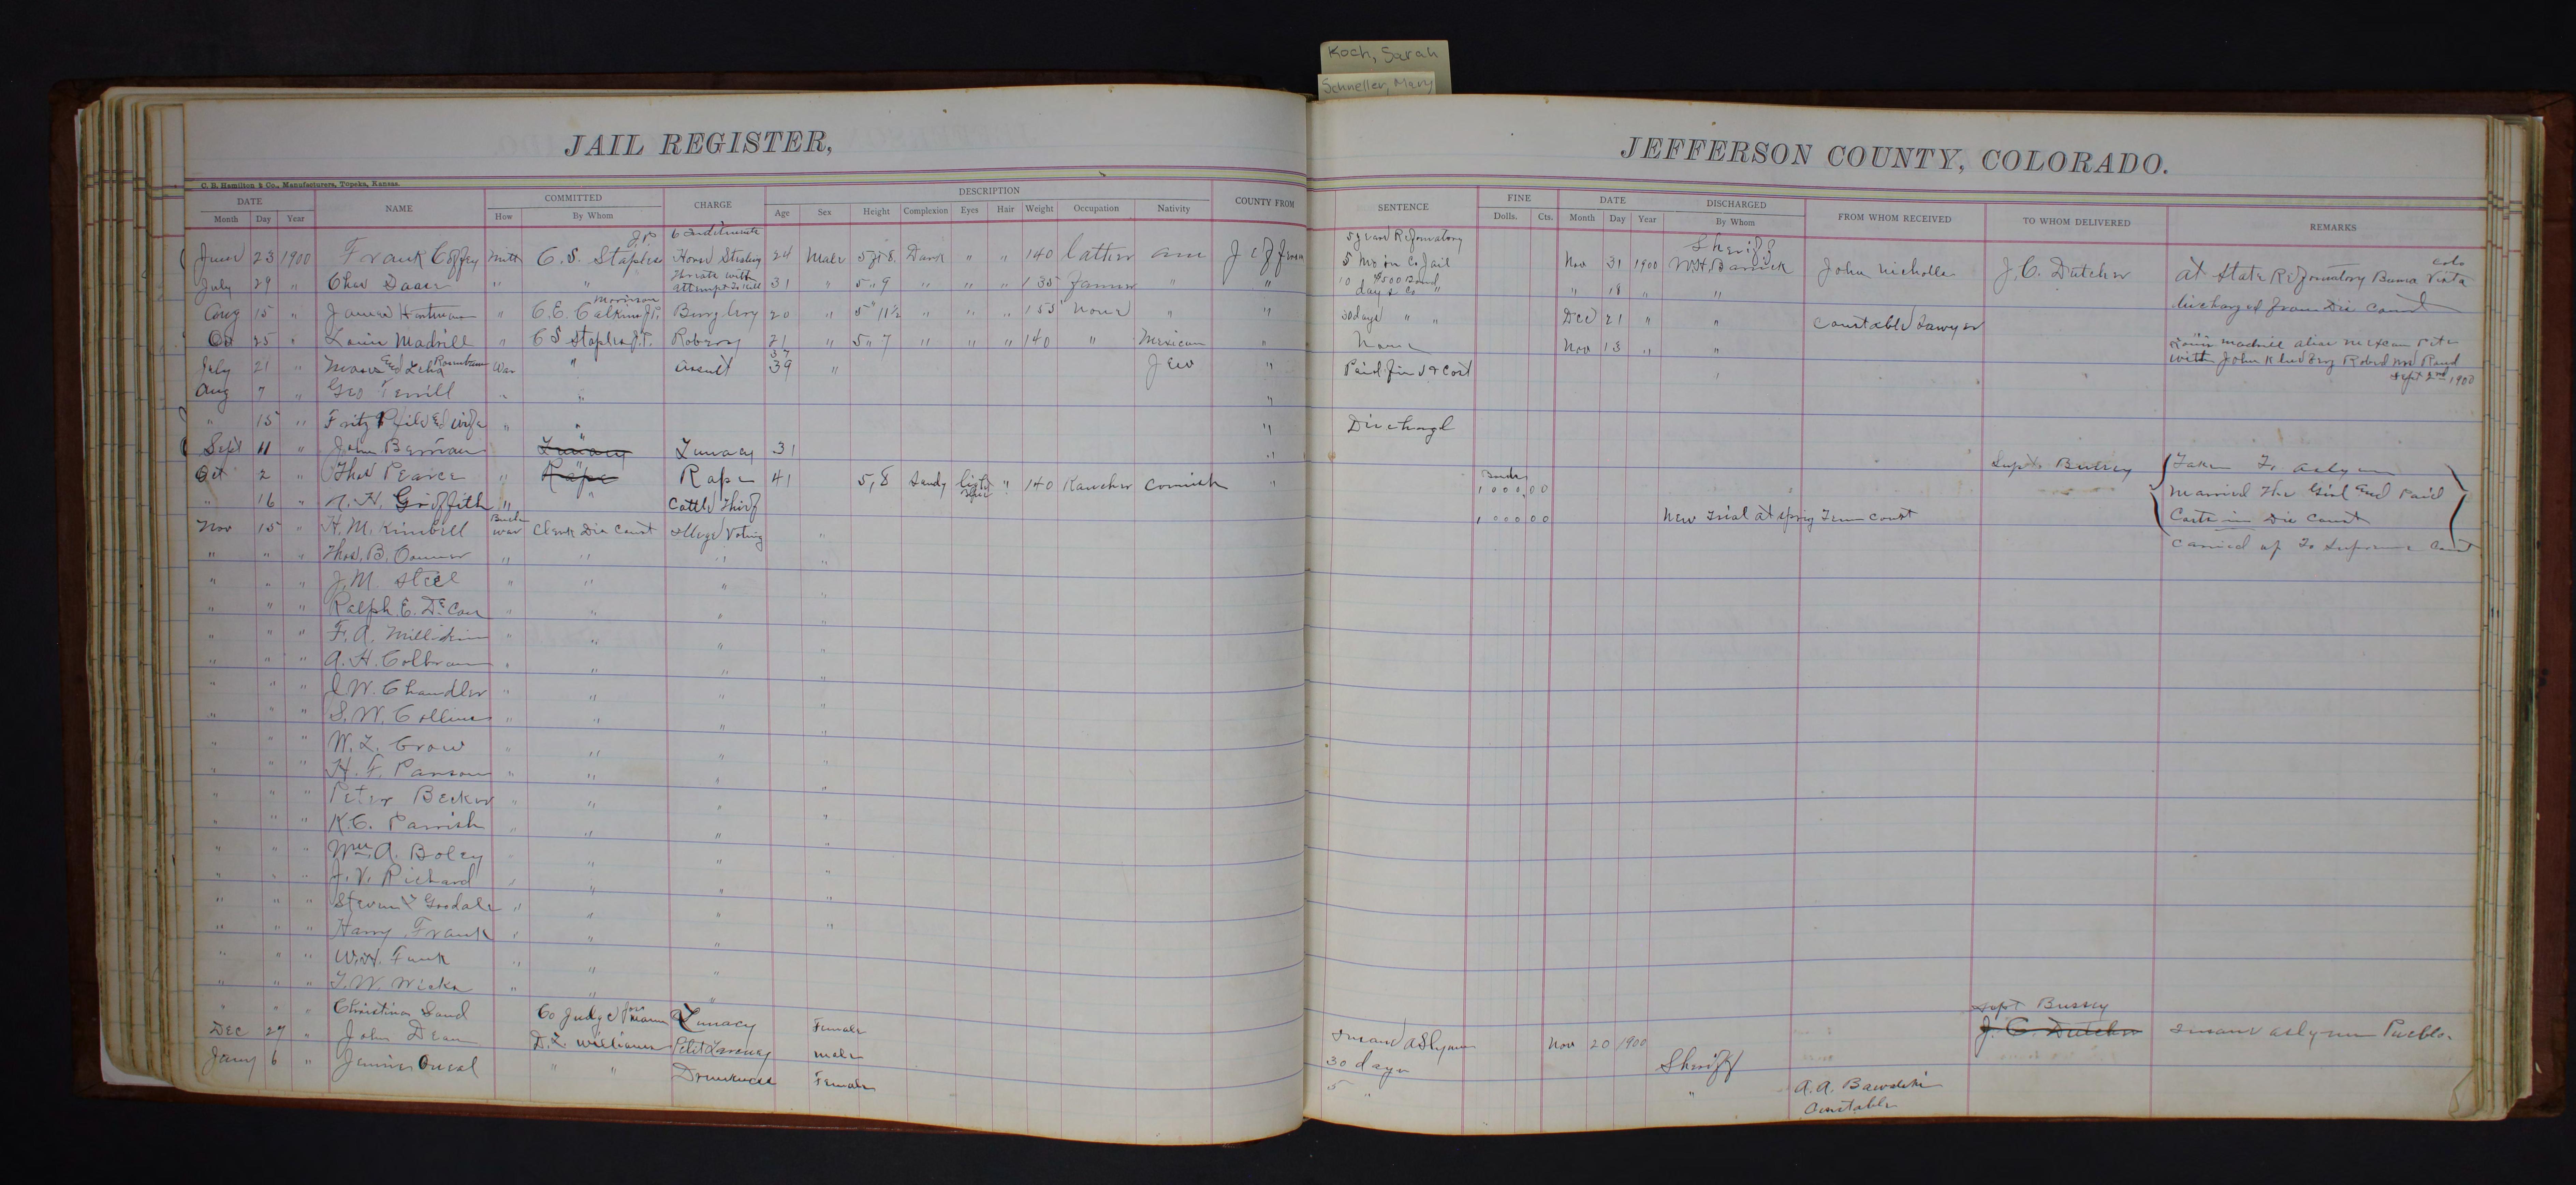 Koch, Sarah
Schneller, Mary
JAIL REGISTER,
C. B. Hamilton & Co., Manufacturers, Topeka, Kansas.
DATE NAME COMMITTED CHARGE DESCRIPTION COUNTY FROM
Month Day Year How By Whom Age Sex Height Complexion Eyes Hair Weight Occupation Nativity
June 23 1900 Frank Coffey Mitt C. S. Staples J.P. 6 Inditments Horse Stealing 24 Male 5 ft 8 Dark " " 140 am Jefferson
July 29 " Chas " " Threats with attempt to kill 31 " 5 " 9 " " " 135 Farmer " "
Aug 15 " James Hartman " C. E. Calkins J.P. Morrison Burglary 20 " 5 " 11½ " " " 155 None " "
Oct 25 " Louis Madrill " C S Staples J.P. Robery 21 " 5 " 7 " " " 140 " Mexican "
July 21 " Moses Ed Zelia Rosenbaum War " Assult 37 39 " Jew "
Aug 7 " Geo Terrill " " "
" 15 " Fritz Ed wife " " "
Sept 11 " John Berman " Lunacy 31 "
Oct 2 " Thos Pearce " Rape Rape 41 5,8 Sandy light " 140 Rancher Cornish "
" 16 " N. H. Griffith " " Cattle Thief
Nov 15 " H. M. Kimbell war Clerk Dis Court Illegal Voting "
" " " Thos. B. " " " "
" " " J. M. Steel " " " "
" " " Ralph E. De Carr " " " "
" " " F. A. Millikin " " " "
" " " A. H. Colbran " " " "
" " " J. W. Chandler " " " "
" " " S. W. Collins " " " "
" " " W. L. Crow " " " "
" " " H. F. Parsons " " " "
" " " Peter Becker " " " "
" " " K. C. Parrish " " " "
" " " Wm A. Boley " " " "
" " " J. V. Richard " " " "
" " " Goodale " " " "
" " " Harry Frank " " " "
" " " Funk " " "
" " " Wicks " " "
" " " Christina Sand Co Judge Lunacy Female
Dec 27 " John Dean D. L. Williams Petit Larceny male
Jany 6 " " " Drunkness Female
JEFFERSON COUNTY, COLORADO.
SENTENCE FINE DATE DISCHARGED FROM WHOM RECEIVED TO WHOM DELIVERED REMARKS
Dolls. Cts. Month Day Year By Whom
5 years Reformatory
5 Mo in Co Jail Nov 31 1900 Sheriff John Nicholls J. C. Dutcher At State Reformatory Buena Vista Colo
10 days Co " $500 Bond " 18 " " discharged from Dis Court
30 days " " Dec 21 " " Constable Sawyer
None Nov 13 " " Louis Madrill alias Mexican Pete
with John Robed Mrs
Sept 2nd 1900
Paid fine & Cost
Discharged
Supt. Bussey Taken To Aslym
Bonds 1000.00 Married The Girl and Paid
Costs in Dis Court
1000 00 New Trial at Spring Term Court Carried up To Supreme Court
Insane Aslyum Nov 20 1900 Supt Bussey J. C. Dutcher Insane aslyum Pueblo.
30 days Sheriff
5 " " A. A. Constable